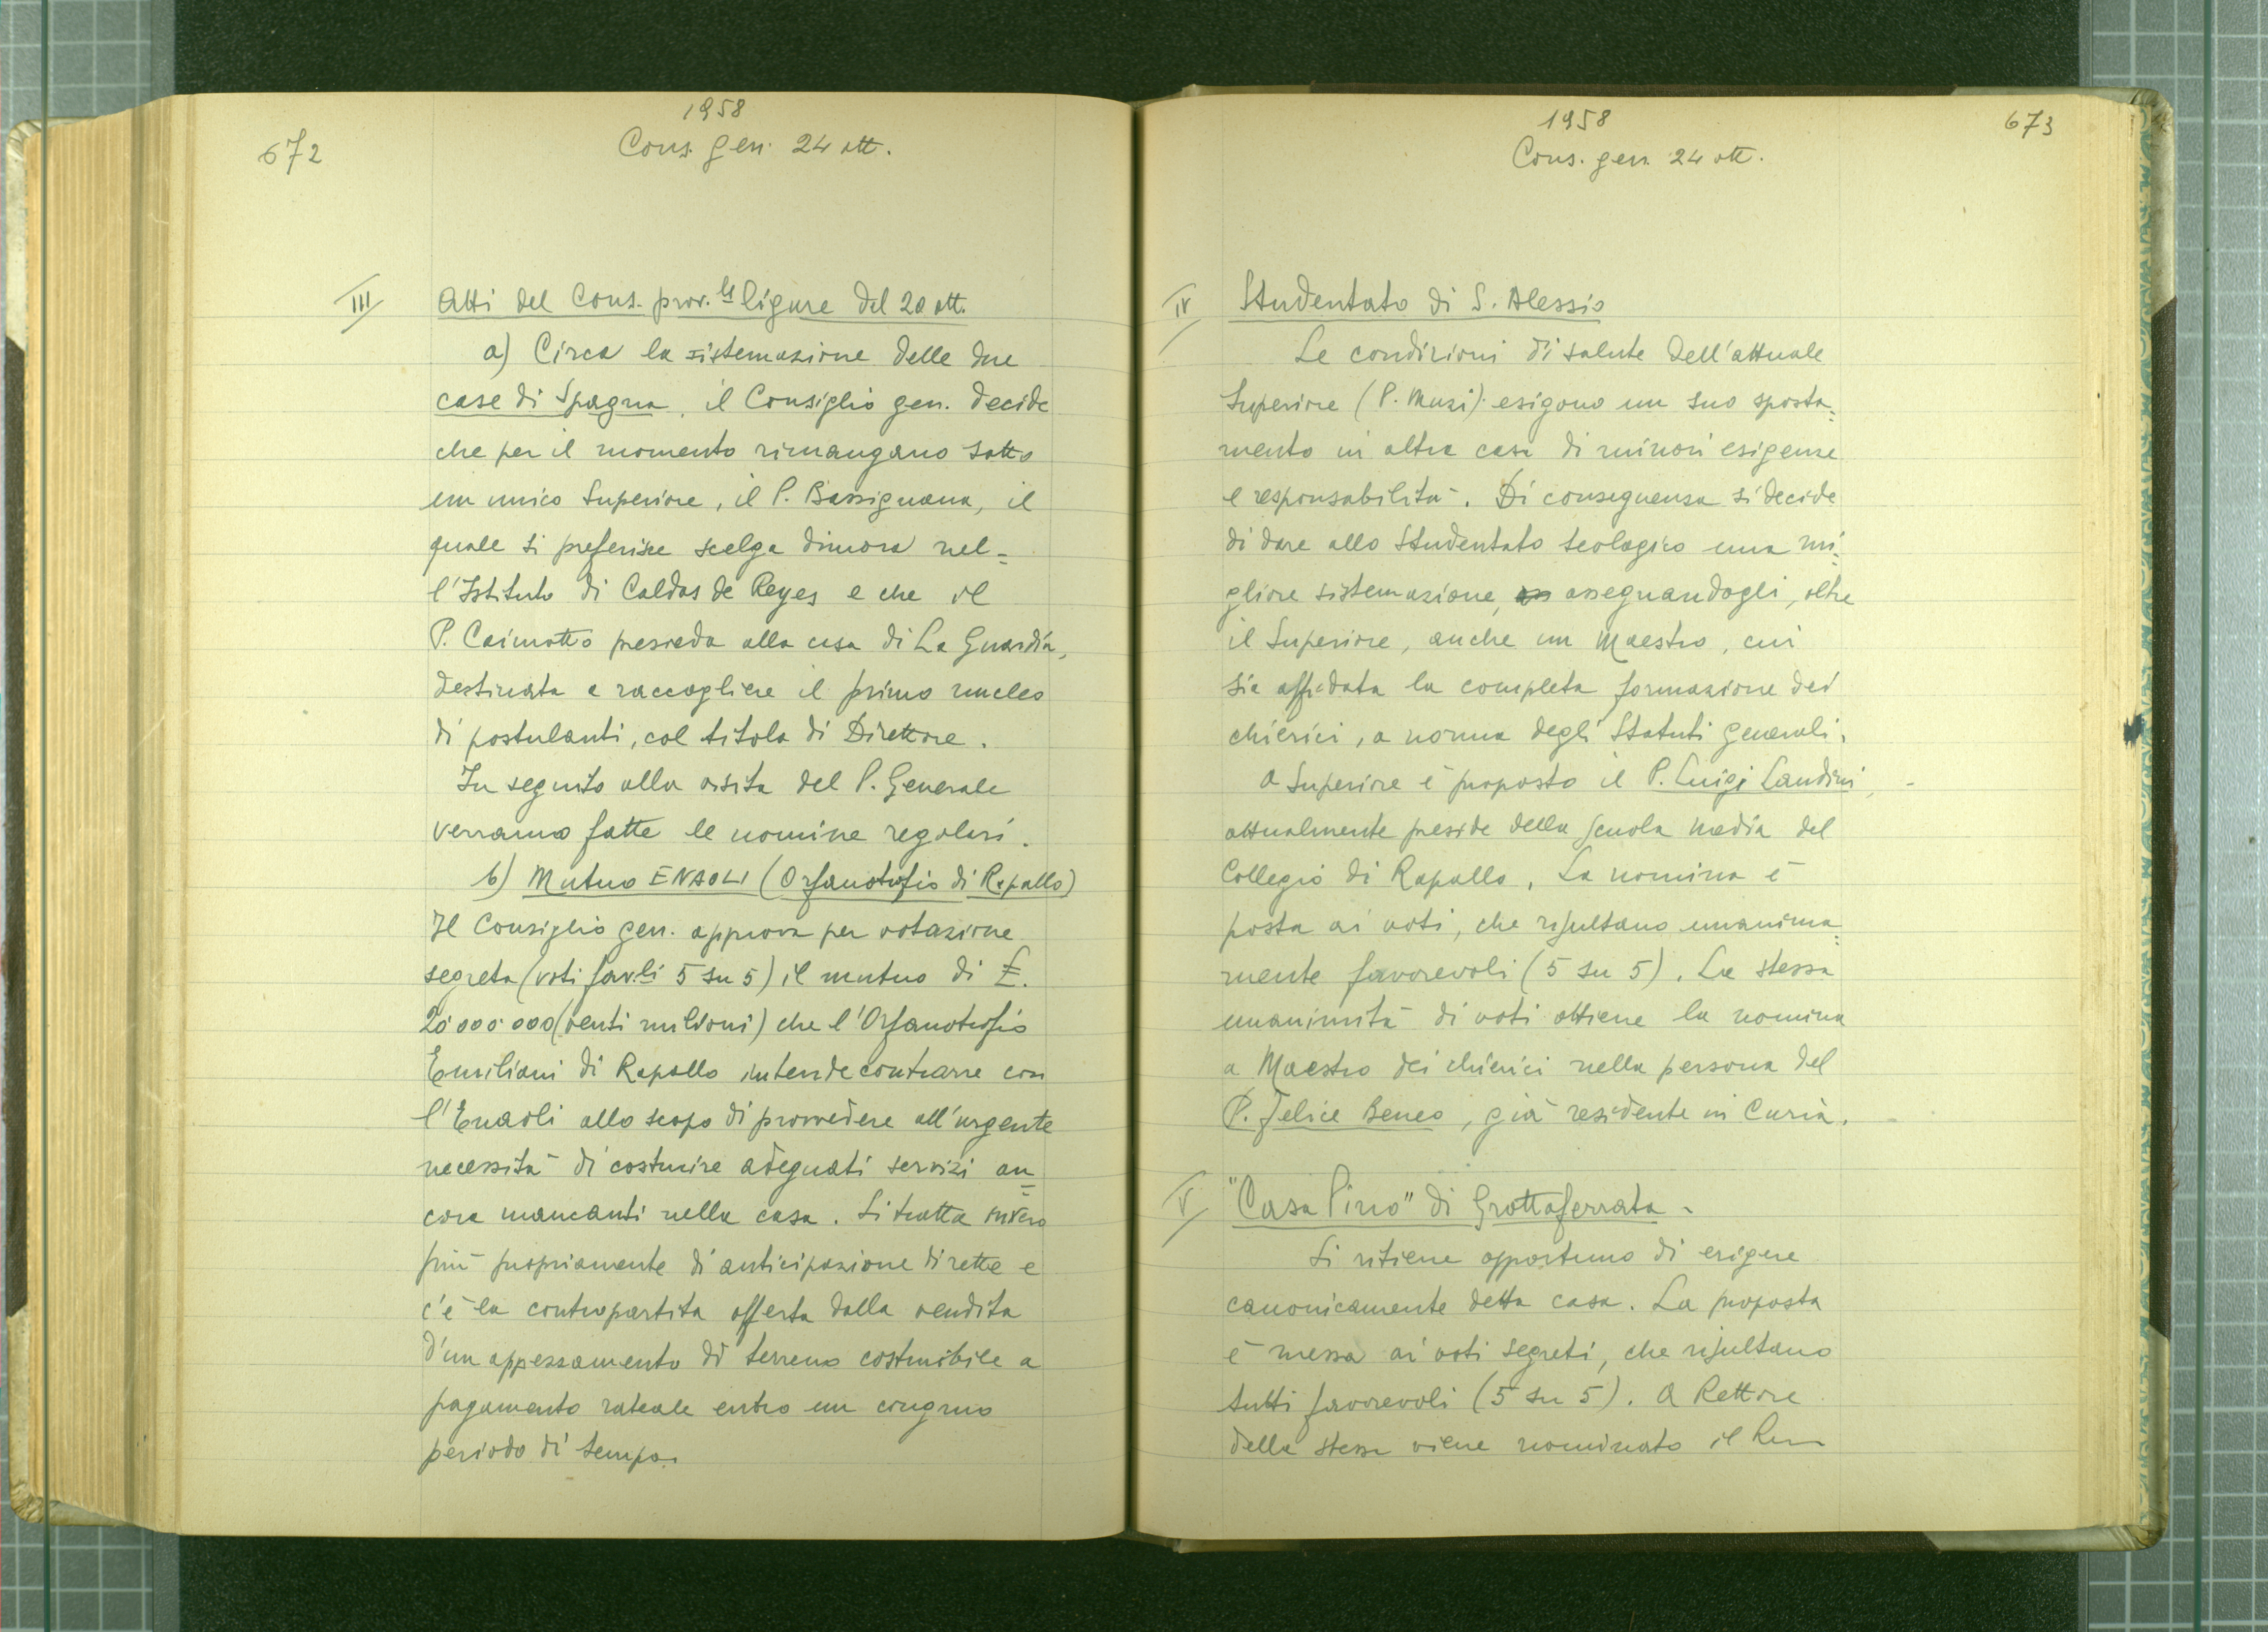 672
1958
Cons. gen. 24 ott.
III Atti del Cons. prov.le ligure del 20 ott.
a) Circa la sistemazione delle due
case di Spagna, il Consiglio gen. decide
che per il momento rimangano sotto
un unico Superiore, il P. Bassignana, il
quale si preferisce scelga dimora nel=
l'Istituto di Caldas de Reyes e che il
P. Caimotto presieda alla casa di La Guardia,
destinata a raccogliere il primo nucleo
di postulanti, col titolo di Direttore.
In seguito alla visita del P. Generale
verranno fatte le nomine regolari.
b) Mutuo ENAOLI (Orfanotrofio di Rapallo)
Il Consiglio gen. approva per votazione
segreta (voti fav.li 5 su 5) il mutuo di £.
20.000.000 (venti milioni) che l'Orfanotrofio
Emiliani di Rapallo intende contrarre con
l'Enaoli allo scopo di provvedere all'urgente
necessità di costruire adeguati servizi an=
cora mancanti nella casa. Si tratta invero
più propriamente di anticipazione di rette e
c'è la contropartita offerta dalla vendita
d'un appezzamento di terreno costruibile a
pagamento rateale entro un congruo
periodo di tempo.
1958
673
Cons. gen. 24 ott.
IV Studentato di S. Alessio
Le condizioni di salute dell'attuale
Superiore (P. Muzi) esigono un suo sposta=
mento in altra casa di minori esigenze
e responsabilità. Di conseguenza si decide
di dare allo Studentato teologico una mi=
gliore sistemazione, assegnandogli, oltre
il Superiore, anche un Maestro, cui
sia affidata la completa formazione dei
chierici, a norma degli Statuti generali.
A Superiore è proposto il P. Luigi Landini,
attualmente preside della scuola media del
Collegio di Rapallo. La nomina è
posta ai voti, che risultano unanima=
mente favorevoli (5 su 5). La stessa
unanimità di voti ottiene la nomina
a Maestro dei chierici nella persona del
P. Felice Beneo, già residente in Curia.
V "Casa Pino" di Grottaferrata.
Si ritiene opportuno di erigere
canonicamente detta casa. La proposta
è messa ai voti segreti, che risultano
tutti favorevoli (5 su 5). A Rettore
della stessa viene nominato il